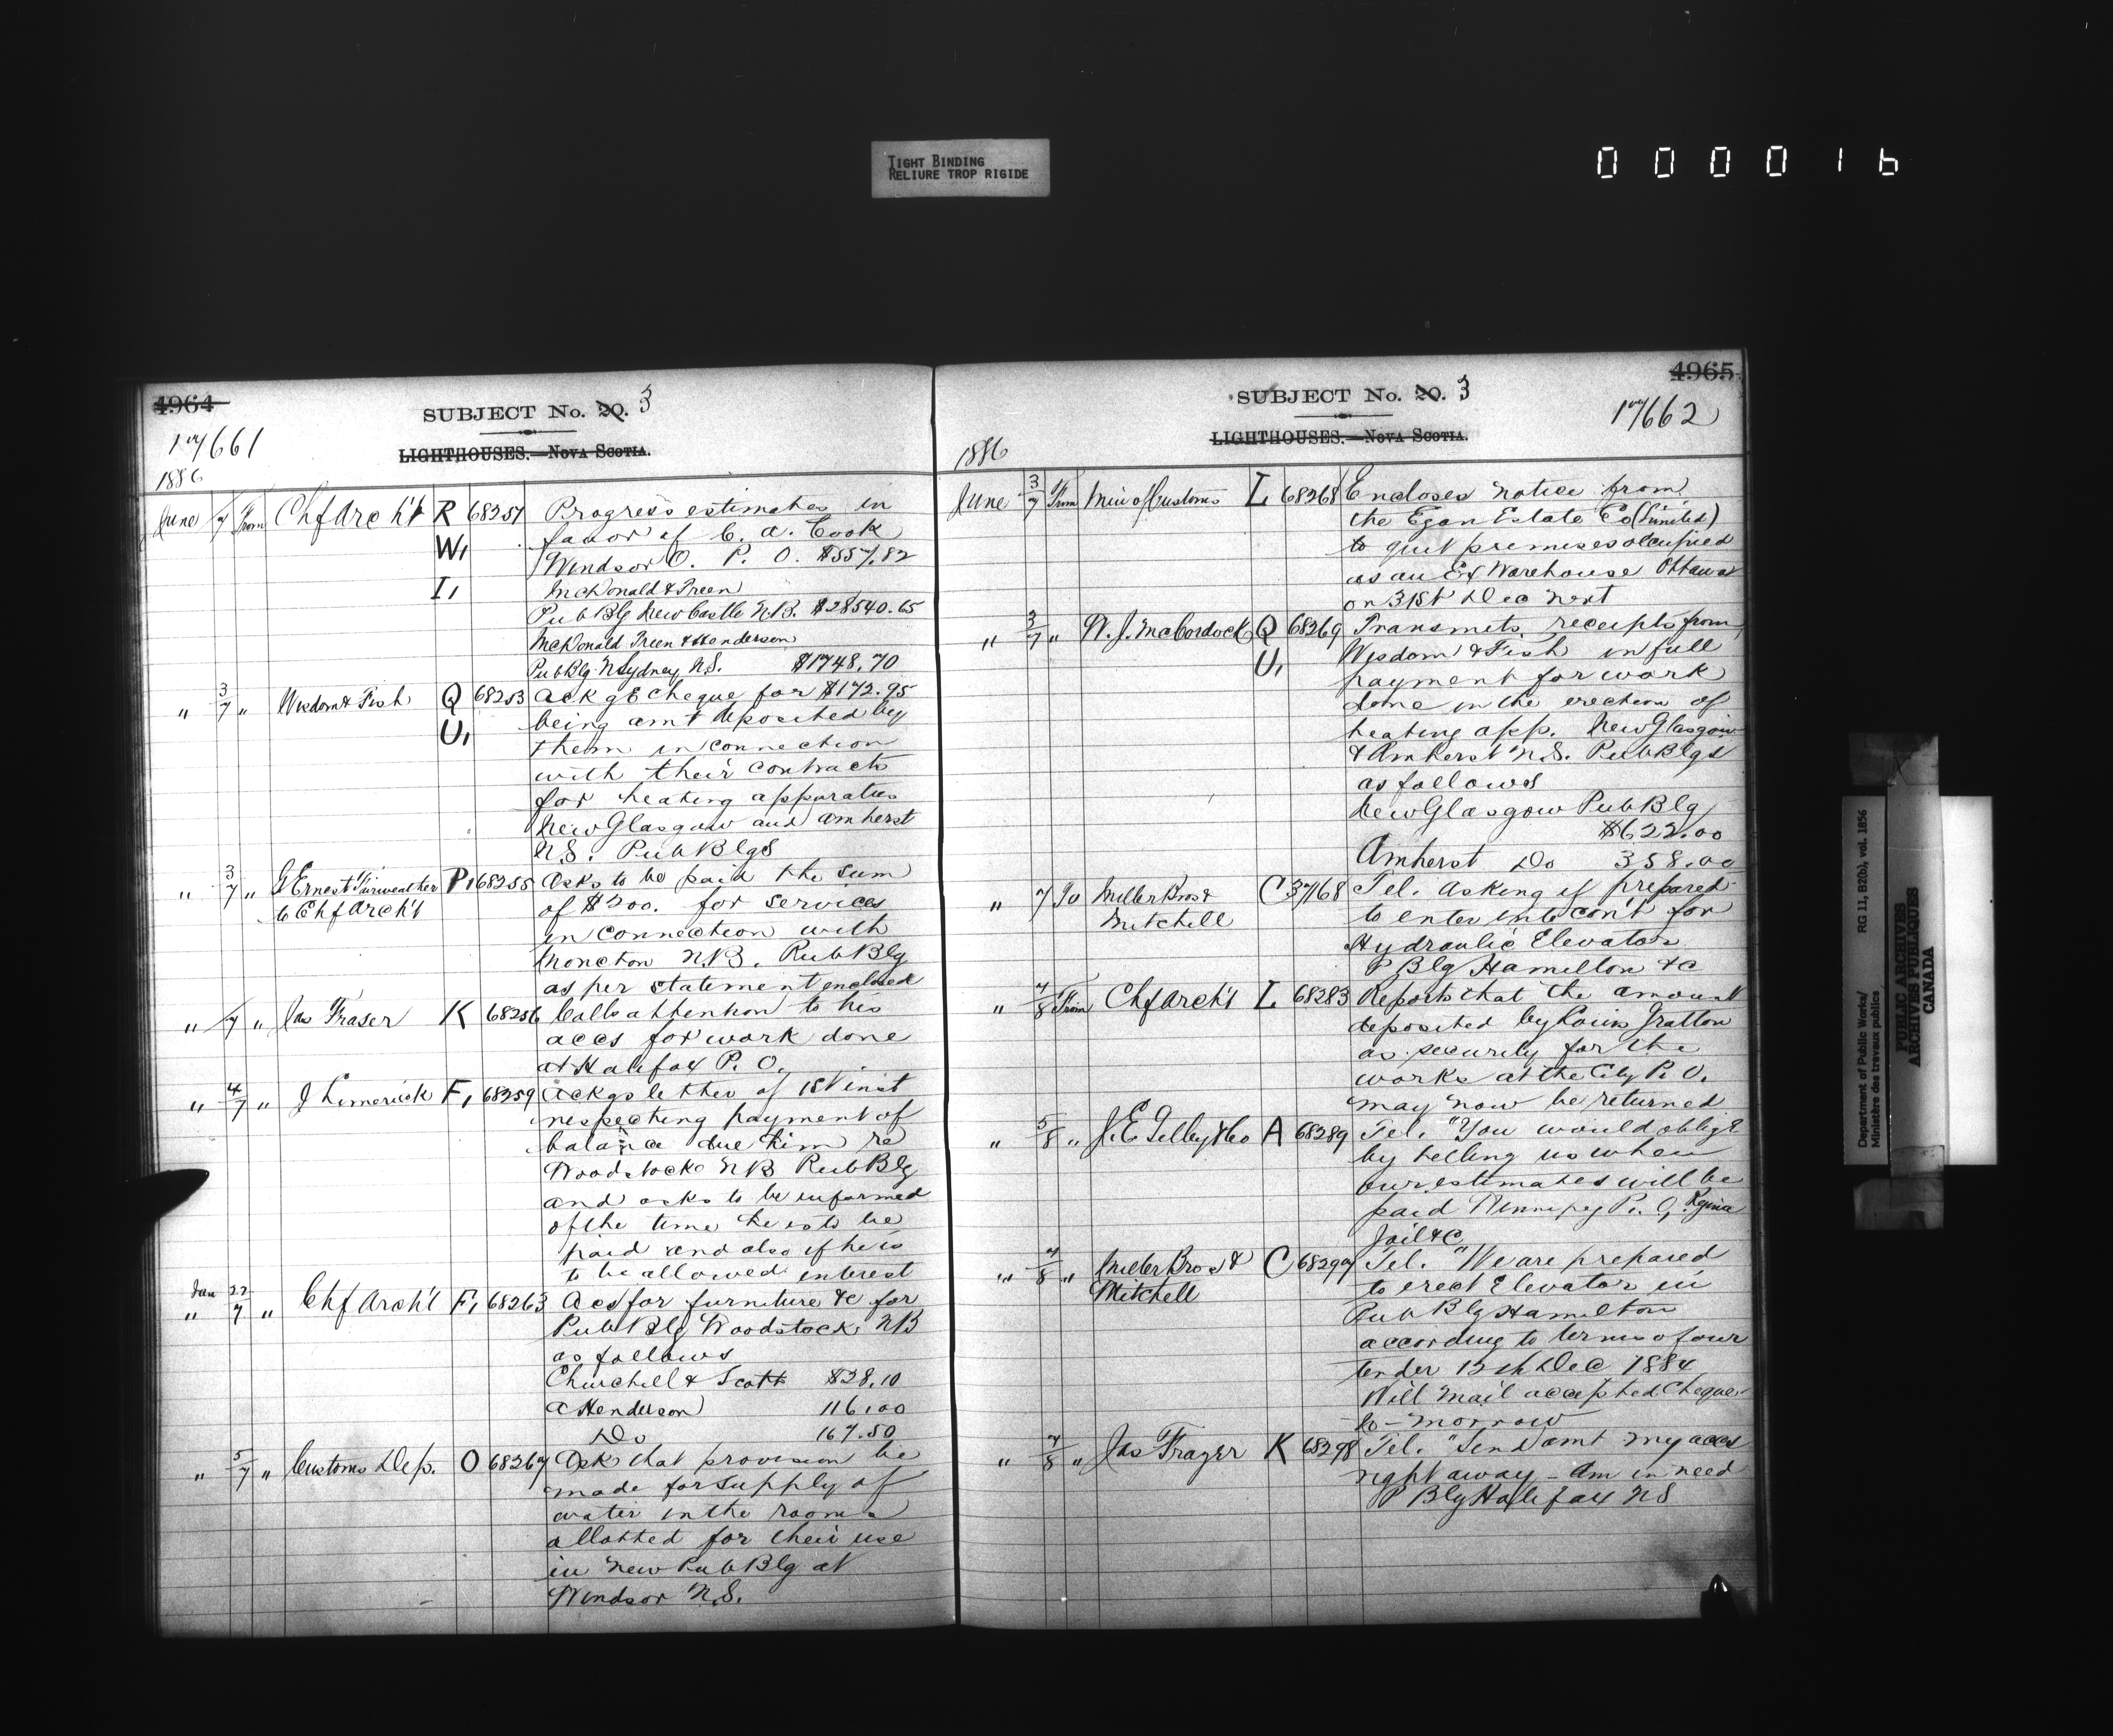 TIGHT BINDING
RELIURE TROP RIGIDE
000016
4964
SUBJECT No. 20. 3
17661
LIGHTHOUSES.—NOVA SCOTIA.
1886
June 7 From Chf Arch't R 68251 Progress estimates in
W, favor of C. A. Cook
Windsor P. O. $557.82
I, McDonald & Preen
Pub Blg New Castle N.B. $28540.65
McDonald Preen & Henderson
Pub Blg N Sydney N.S. $1748.70
" 3/7 " Wisdom & Fish Q 68253 Ackgs cheque for $172.95
U, being amt deposited by
them in connection
with their contracts
for heating apparatus
New Glasgow and Amherst
N.S. Pub Blgs
" 3/7 " G Ernest Fairweather P, 68255 Asks to be paid the sum
to Chf Arch't of $200. for services
in connection with
Moncton N.B. Pub Blg
as per statement enclosed
" /7 " Jas Fraser K 68256 Calls attention to his
accs for work done
at Halifax P. O.
" 4/7 " J Limerick F, 68259 Ackgs letter of 1st inst
respecting payment of
balance due him re
Woodstock NB Pub Blg
and asks to be informed
of the time he is to be
paid and also if he is
to be allowed interest
Jan 22
" 7 " Chf Arch't F, 68263 Accs for furniture &c for
Pub Blg Woodstock NB
as follows
Churchill & Scott $28.10
A Henderson 116.00
Do 167.50
" 5/7 " Customs Dep. O 68267 Asks that provision be
made for supply of
water in the rooms
allotted for their use
in new Pub Blg at
Windsor N.S.
4965
SUBJECT No. 20. 3
17662
LIGHTHOUSES.—NOVA SCOTIA.
1886
June 3/7 From Min of Customs L 68268 Encloses notice from
the Egan Estate Co (Limited)
to quit premises occupied
as an Ex Warehouse Ottawa
on 31st Dec next
" 3/7 " W. J. McCordock Q 68269 Transmits receipts from
U, Wisdom & Fish in full
payment for work
done in the erection of
heating app. New Glasgow
& Amherst N.S. Pub Blgs
as follows
New Glasgow Pub Blg
$622.00
Amherst Do 358.00
" 7 To Miller Bros & C 37168 Tel. asking if prepared
Mitchell to enter into con't for
Hydraulic Elevator
P Blg Hamilton &c
" 7/8 From Chf Arch't L 68283 Reports that the amount
deposited by Louis Gratton
as security for the
works at the City P. O.
may now be returned
" 5/8 " J. E. Gelley & Co A 68289 Tel. "You would oblige
by telling us when
our estimates will be
paid Winnipeg P. O, Regina
Jail &c
" 7/8 " Miller Bros & C 68297 Tel. "We are prepared
Mitchell to erect Elevator in
Pub Blg Hamilton
according to terms of our
tender 15th Dec 1884
Will mail accepted Cheque
to-morrow
" 7/8 " Jas Frazer K 68298 Tel. "Send amt my accs
right away – Am in need
P Blg Halifax NS
Department of Public Works/ RG 11, B2(b), vol. 1856
Ministère des travaux publics
PUBLIC ARCHIVES
ARCHIVES PUBLIQUES
CANADA